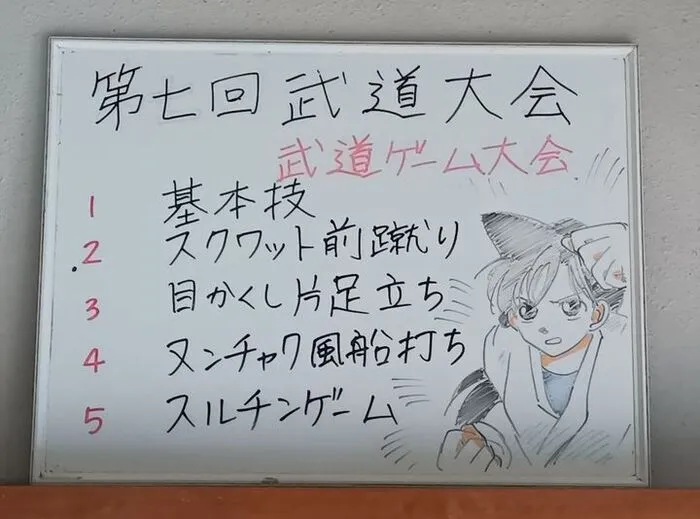 第七回武道大会
武道ゲーム大会
1 基本技
2 スクワット前蹴り
3 目かくし片足立ち
4 ヌンチャク風船打ち
5 スルチンゲーム